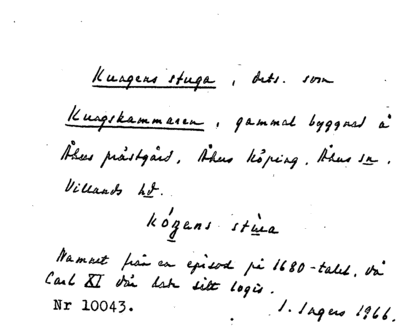 Kungens stuga, dets. som
Kungskammaren, gammal byggnad å
Åhus prästgård, Åhus köping, Åhus sn.
Villands hd.
kózens stùa
Namnet från en episod på 1680-talet, då
Carl XI där hade sitt logis.
Nr 10043. I. Ingers 1966.